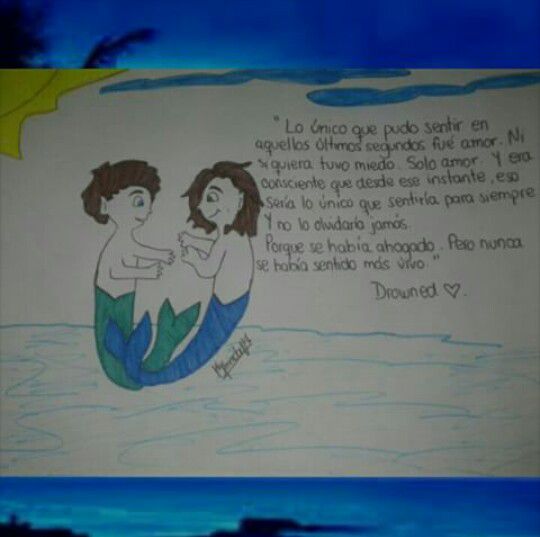 "Lo único que pudo sentir en
aquellos últimos segundos fué amor. Ni
si quiera tuvo miedo. Solo amor. Y era
consciente que desde ese instante, eso
sería lo único que sentiría para siempre
Y no lo olvidaría jamás.
Porque se había ahogado. Pero nunca
se había sentido más vivo."
Drowned ♡.